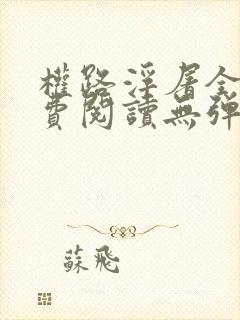 權路淫屠全
費閱讀無彈
蘇飛